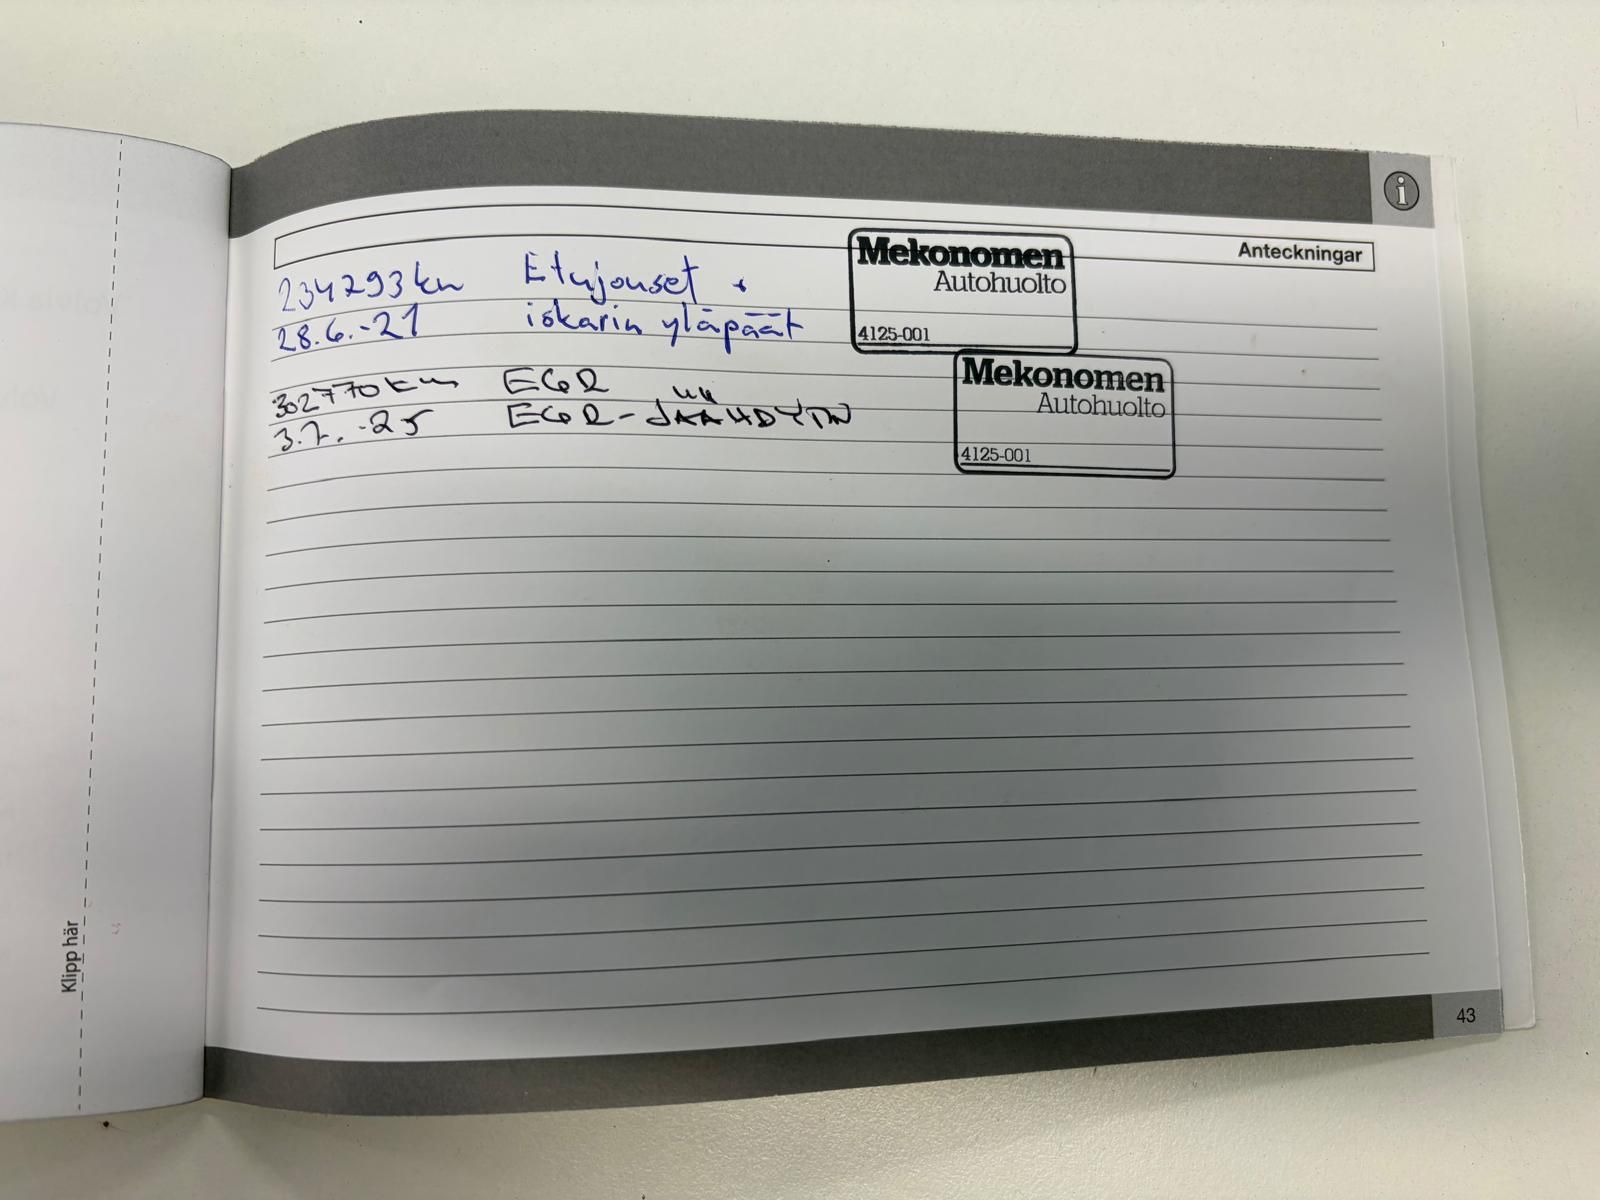 Anteckningar
Mekonomen
Autohuolto
4125-001
234793 km Etujouset +
28.6.-21 iskarin yläpäät
Mekonomen
Autohuolto
4125-001
302770 km EGR
3.7.-25 EGR-JÄÄHDYTIN
Klipp här
43